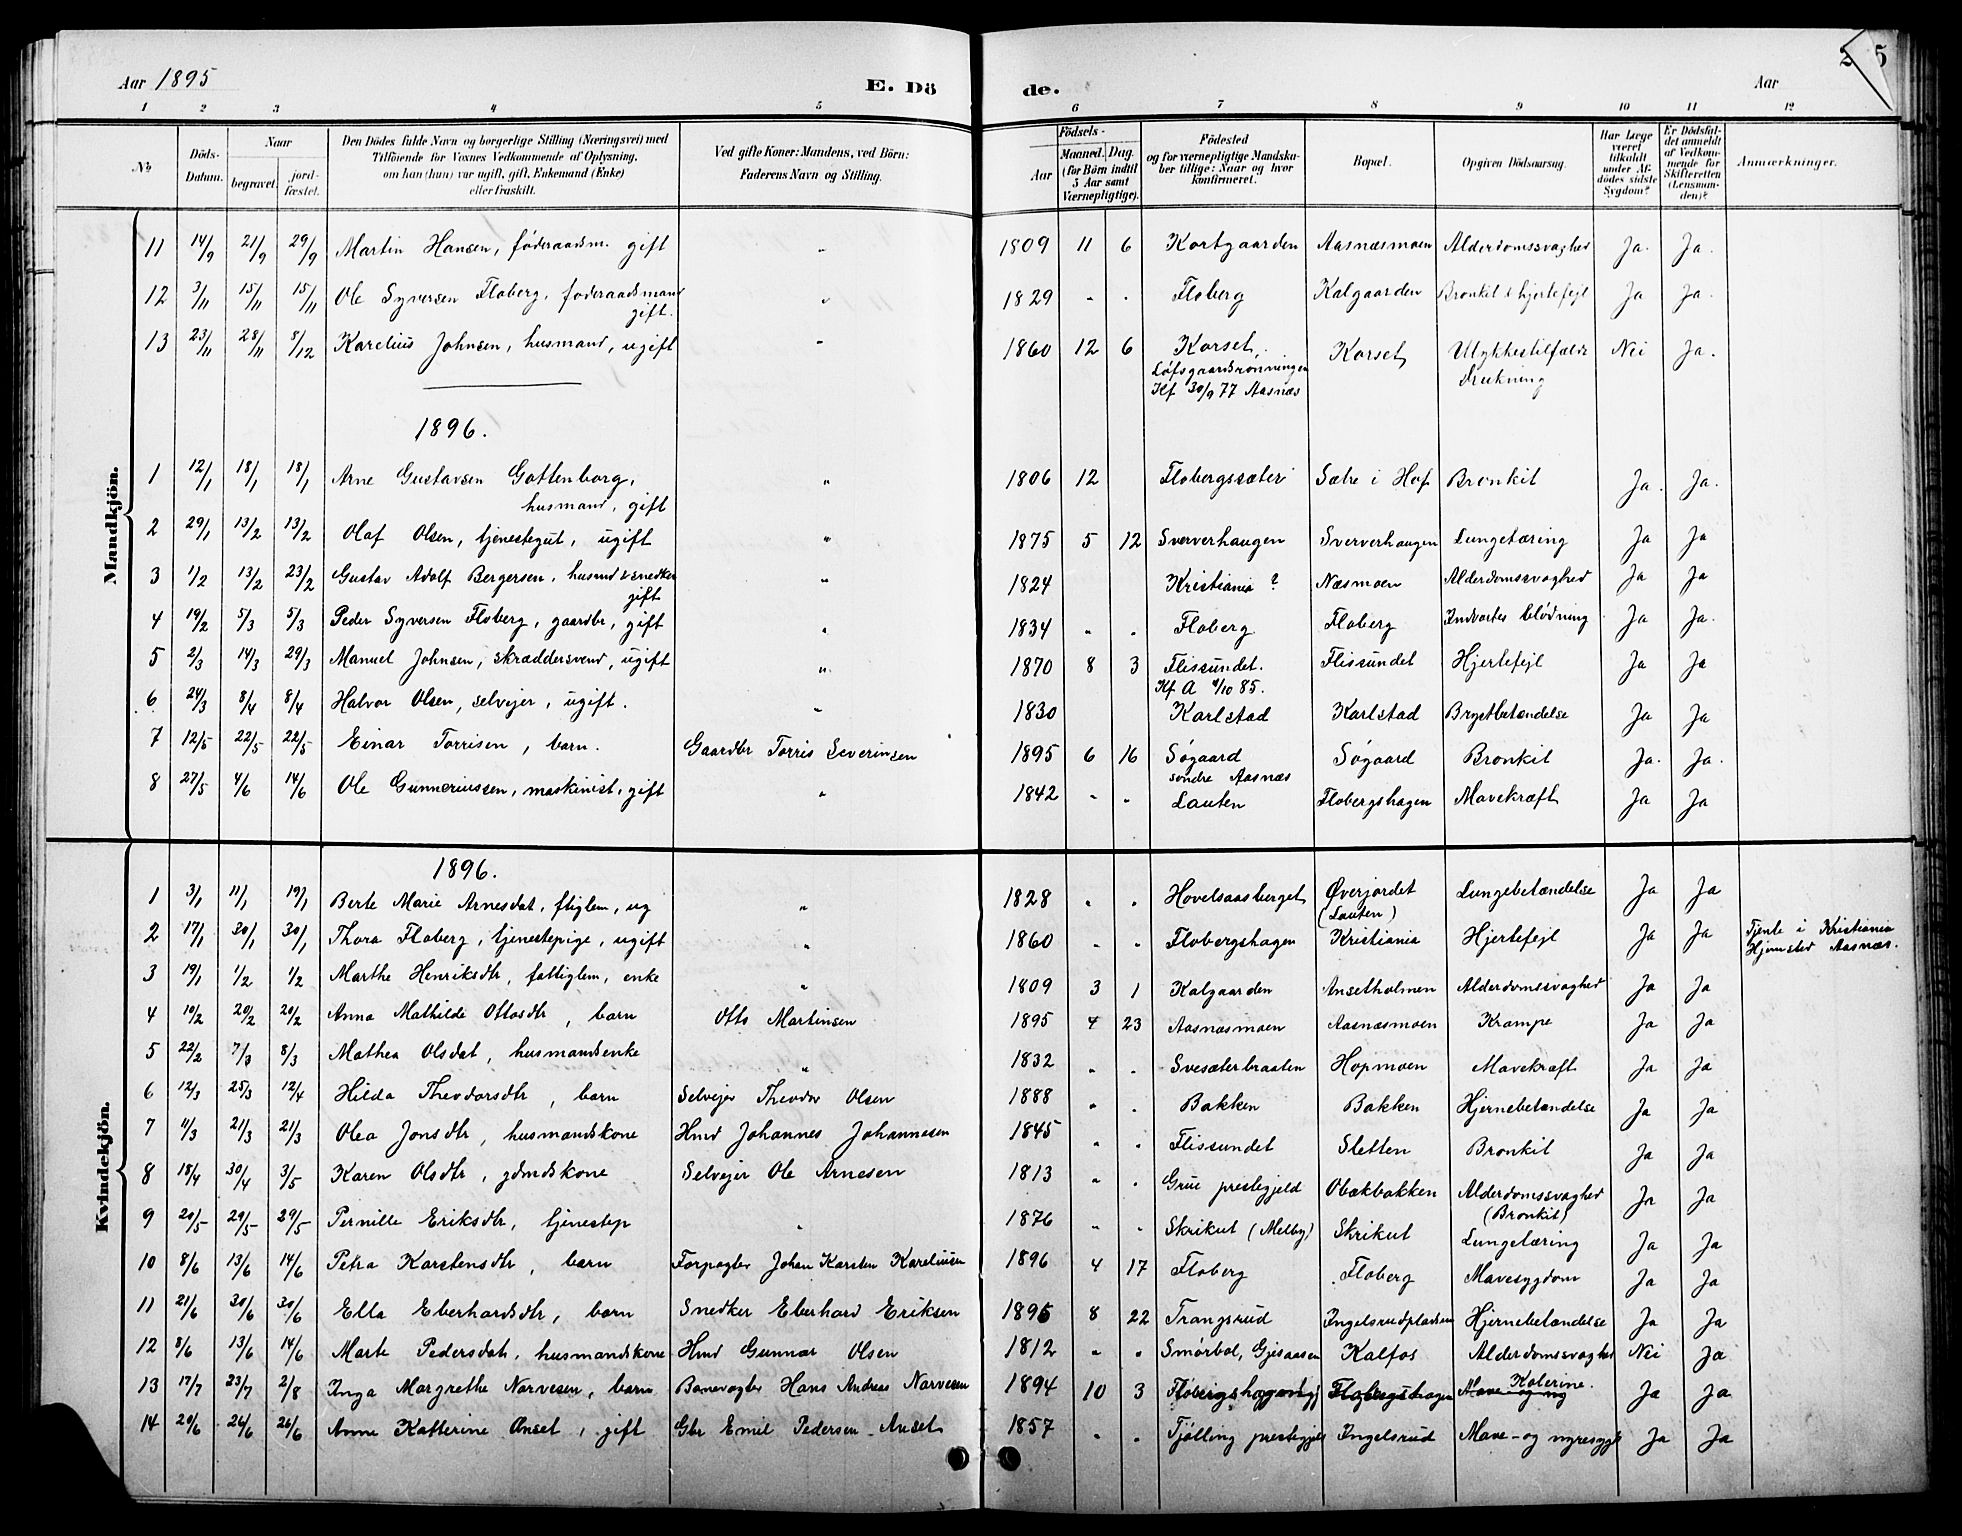 Aar 1895 E. Dö de. Aar 2 5
1 2 3 4 5 6 7 8 9 10 11 12
No Döds-Datum. Naar begravet. jord-fæstet. Den Dödes fulde Navn og borgerlige Stilling (Næringsvei) med Tilföiende for Voxnes Vedkommende af Oplysning, om han (hun) var ugift, gift, Enkemand (Enke) eller fraskilt. Ved gifte Koner: Mandens, ved Börn: Faderens Navn og Stilling. Födsels- Aar Maaned. Dag. (for Börn indtil 5 Aar samt Værnepligtige). Födested og for værnepligtige Mandskaber tillige: Naar og hvor konfirmeret. Bopæl. Opgiven Dödsaarsag. Har Læge været tilkaldt under Afdödes sidste Sygdom? Er Dödsfaldet anmeldt af Vedkommende for Skifteretten (Lensmanden)? Anmærkninger.
Mandkjön.
11 14/9 21/9 29/9 Martin Hansen, föderaadsm. gift " 1809 11 6 Kortgaarden Aasnæsmoen Alderdomssvaghed Ja. Ja.
12 3/11 15/11 15/11 Ole Syversen Floberg, föderaadsmand " 1829 " " Floberg Kalgaarden Bronkit & hjertefejl Ja Ja.
gift.
13 23/11 28/11 8/12 Karelius Johnsen, husmand, ugift " 1860 12 6 Korset, Korset, Ulykkestilfælde Nei Ja.
Löfsgaardsrönningen Drukning
Kf 30/9 77 Aasnæs
1896.
1 12/1 18/1 18/1 Arne Gustavsen Gottenborg, " 1806 12 Flobergsæter Sætre i Hof Bronkit Ja. Ja.
husmand, gift
2 29/1 13/2 13/2 Olaf Olsen, tjenestegut, ugift " 1875 5 12 Sververhaugen Sververhaugen Lungetæring Ja Ja
3 1/2 13/2 23/2 Gustav Adolf Bergersen, husmd & snedker " 1824 Kristiania ? Næsmoen Alderdomssvaghed Ja Ja
gift
4 19/2 5/3 5/3 Peder Syversen Floberg, gaardbr, gift " 1834 " " Floberg Floberg Indvortes blödning Ja Ja.
5 2/3 14/3 29/3 Manuel Johnsen, skræddersvend, ugift " 1870 8 3 Flissundet. Flissundet Hjertefejl Ja Ja
Kf A 4/10 85.
6 24/3 8/4 8/4 Halvor Olsen, selvejer, ugift. " 1830 Karlstad Karlstad Brystbetændelse Ja Ja
7 12/5 22/5 22/5 Einar Torrisen, barn. Gaardbr Torris Severinsen 1895 6 16 Søgaard Søgaard Bronkit Ja. Ja.
søndre Aasnæs
8 27/5 4/6 14/6 Ole Gunneriussen, maskinist, gift " 1842 " " Lauten Flobergshagen Mavekræft Ja Ja
Kvindekjön.
1896.
1 3/1 11/1 19/1 Berte Marie Arnesdat, ftiglem, ug " 1828 " " Hovelsaasberget Øverjordet Lungebetændelse Ja Ja
(Lauten)
2 17/1 30/1 30/1 Thora Floberg, tjenestepige, ugift " 1860 " " Flobergshagen Kristiania Hjertefejl Ja Ja Tjente i Kristiania
Hjemsted Aasnæs.
3 19/1 1/2 1/2 Marthe Henriksdtr, fattiglem, enke " 1809 3 1 Kalgaarden Ansetholmen Alderdomssvaghed Ja Ja
4 10/2 20/2 20/2 Anna Mathilde Ottosdtr, barn Otto Martinsen 1895 4 23 Aasnæsmoen Aasnæsmoen Krampe Ja Ja
5 22/2 7/3 8/3 Mathea Olsdat, husmandsenke " 1832 " " Svesæterbraaten Hopmoen Mavekræft Ja Ja
6 12/3 25/3 12/4 Hilda Theodorsdtr, barn Selvejer Theodor Olsen 1888 " " Bakken Bakken Hjernebetændelse Ja Ja
7 11/3 21/3 21/3 Olea Jonsdtr, husmandskone Hmd Johannes Johannesen 1845 " " Flissundet Sletten Bronkit Ja Ja
8 18/4 30/4 3/5 Karen Olsdtr, gdmdskone Selvejer Ole Arnesen 1813 " " Grue prestegjeld Obækbakken Alderdomssvaghed Ja Ja
(Bronkit)
9 20/5 29/5 29/5 Pernille Eriksdtr, tjenestep " 1876 " " Skrikut (Melby) Skrikut Lungetæring Ja Ja
10 8/6 13/6 14/6 Petra Karstensdtr, barn Forpagter Johan Karsten Kareliusen 1896 4 17 Floberg Floberg Mavesygdom Ja Ja
11 21/6 30/6 30/6 Ella Eberhardsdtr, barn Snedker Eberhard Eriksen 1895 8 22 Trangsrud Ingelsrudpladsen Hjernebetændelse Ja Ja
12 8/6 13/6 14/6 Marte Pedersdat, husmandskone Hmd Gunnar Olsen 1812 " " Smørbøl, Gjesaasen Kalfos Alderdomssvaghed Nei Ja
13 17/7 23/7 2/8 Inga Margrethe Narvesen, barn Banevogter Hans Andreas Narvesen 1894 10 3 Flobergshagen Flobergshagen Kolerine. Ja Ja
14 20/6 26/6 26/6 Anne Katterine Anset, gift Gbr Emil Pedersen Anset 1857 " " Tjölling prestegjeld Ingelsrud Mave- og nyresyge Ja Ja